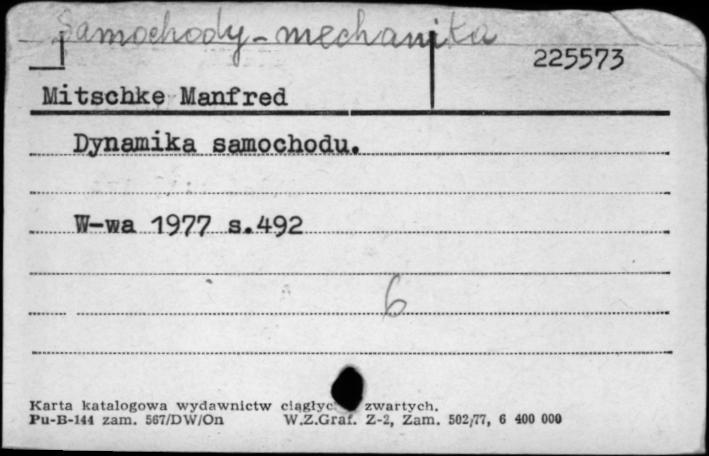 Samochody - mechanika
225573
Mitschke Manfred
Dynamika samochodu.
W-wa 1977 s.492
6
Karta katalogowa wydawnictw ciągłyc zwartych.
Pu-B-144 zam. 567/DW/On W.Z.Graf. Z-2, Zam. 502/77, 6 400 000